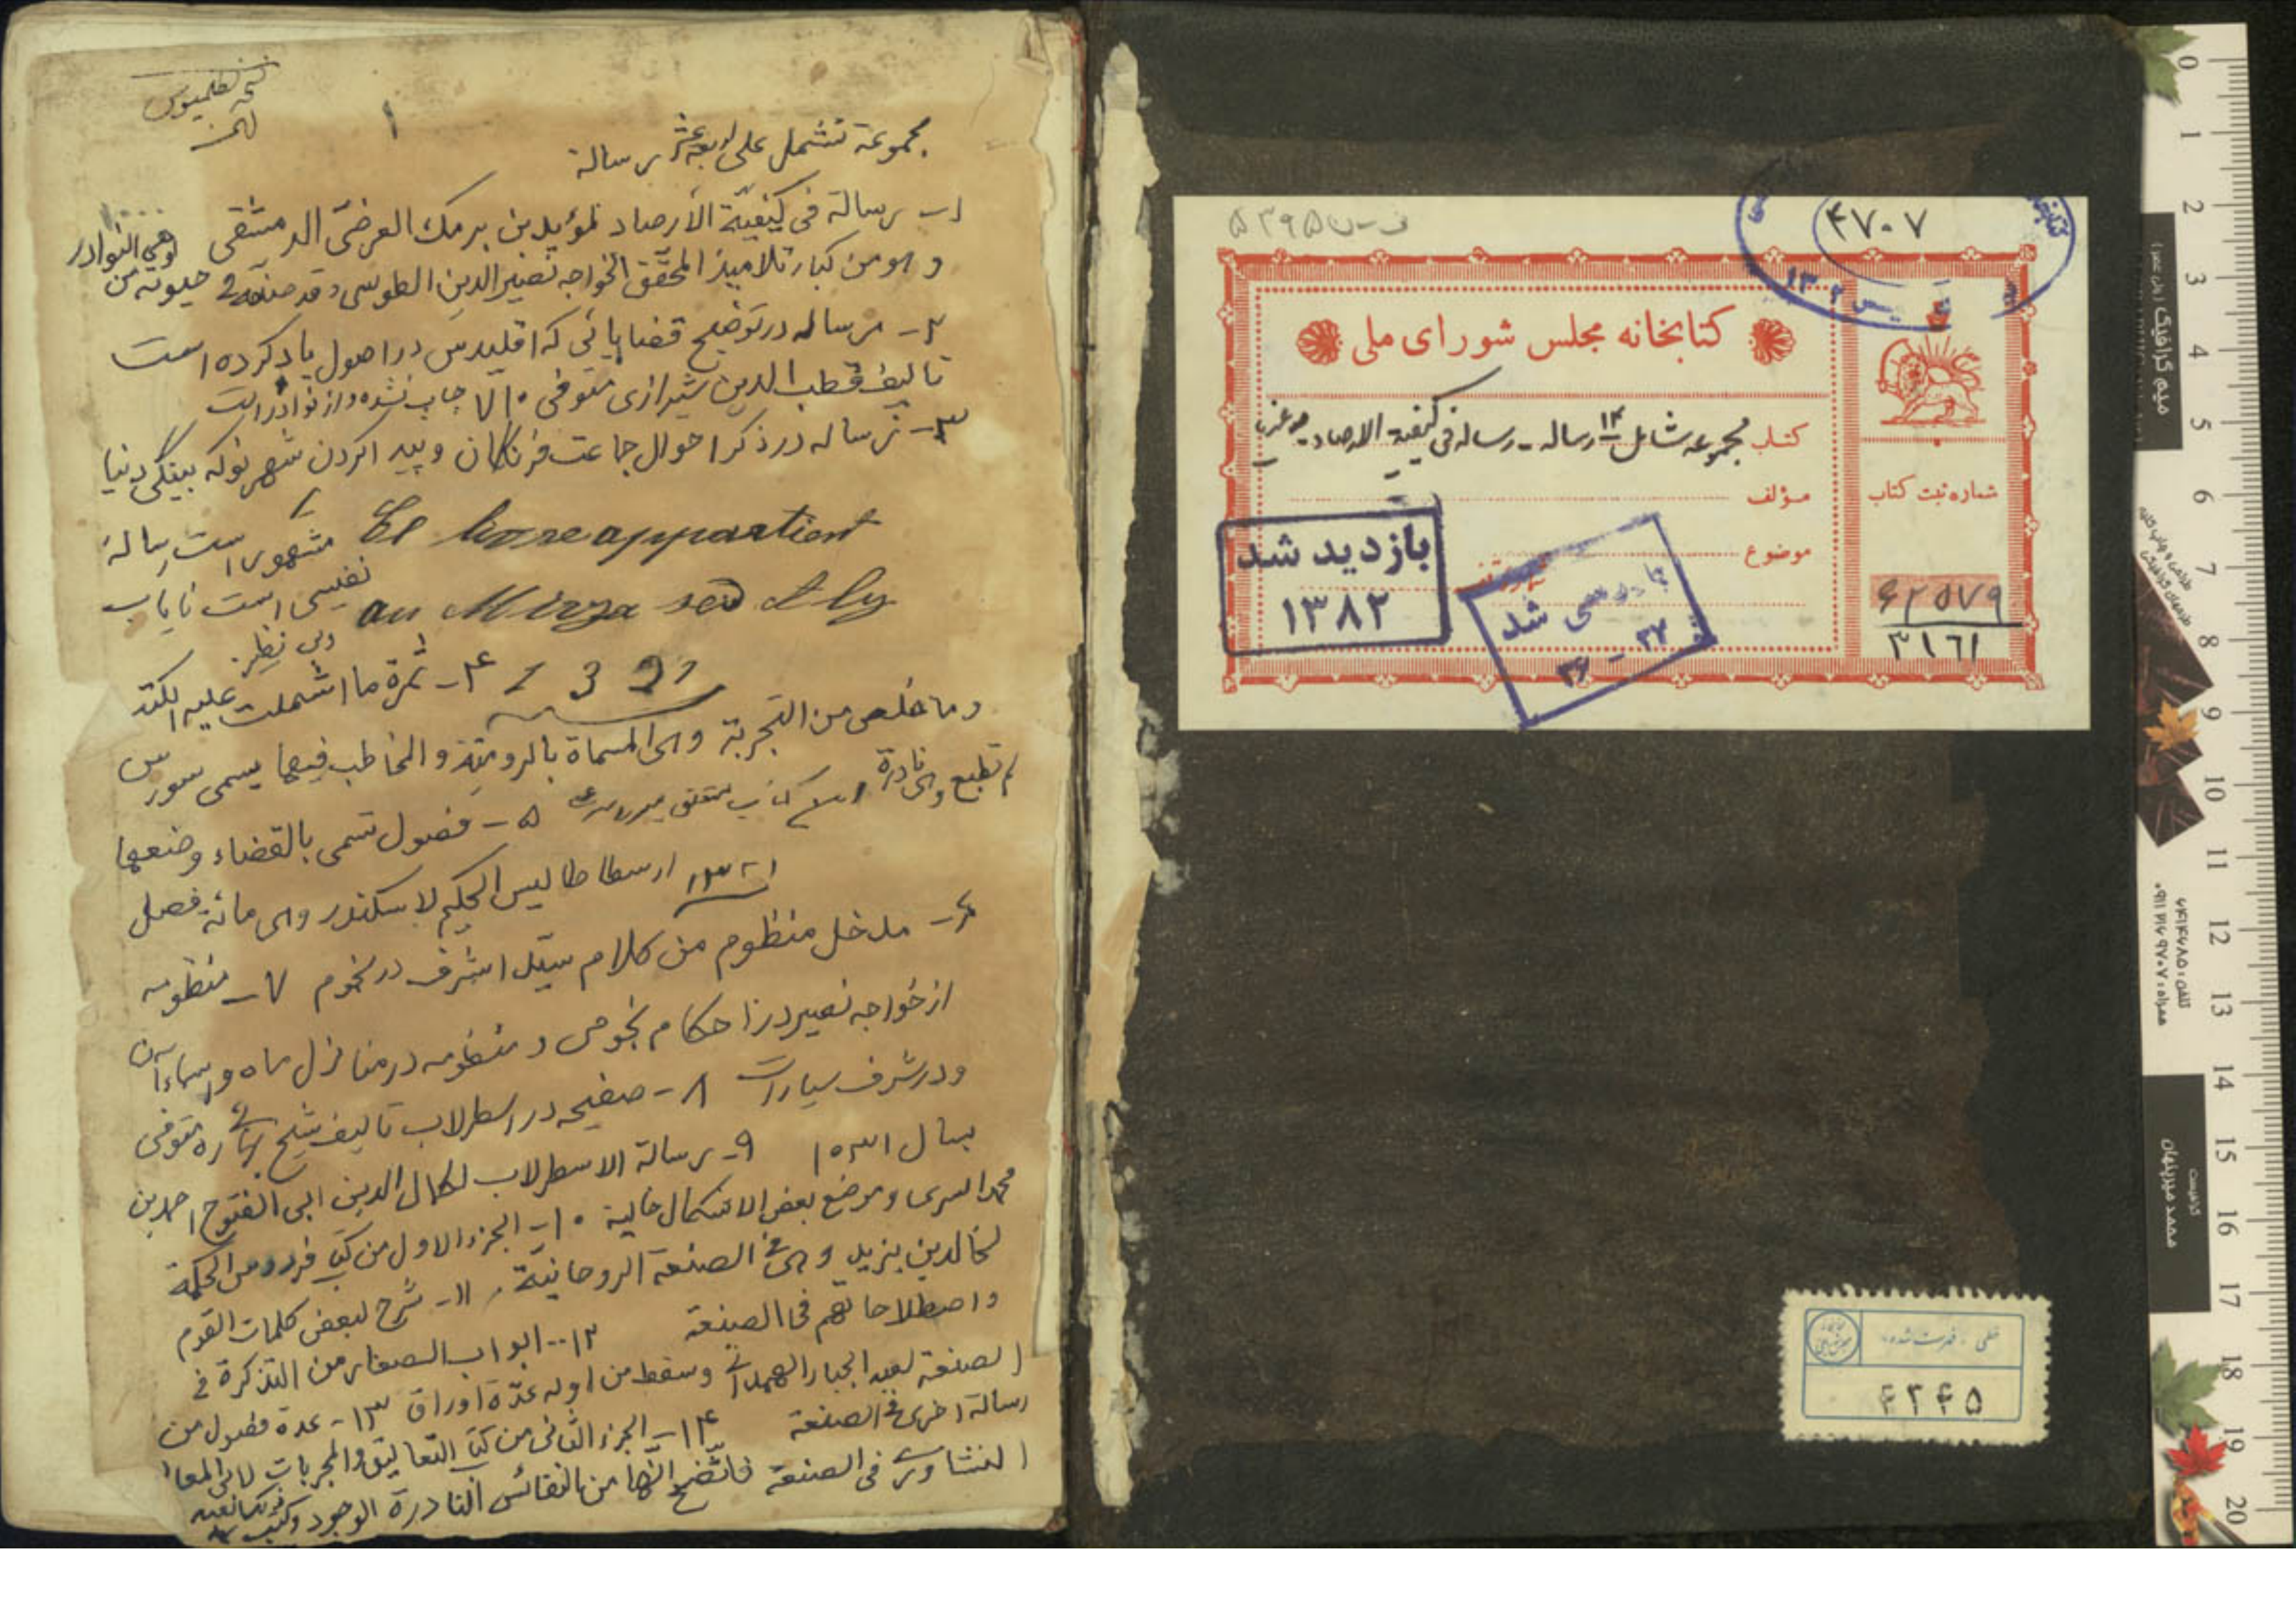 مجموعة تشتمل على اربعة عشر رسالة
۱
۱ـ رسالة فی کیفیّة الأرصاد لمؤیدین برمک العرضیّ الدمشقی
وهو من کبار تلامیذ المحقّق الخواجه نصیر الدین الطوسی وقد صنفه فی حیوته وهی من النوادر
۲ـ رساله در توضیح قضایائی که اقلیدس در اصول یاد کرده است
تالیف قطب الدین شیرازی متوفی ۷۱۰ چاپ نشده و از نوادر است
۳ـ رساله در ذکر احوال جماعت فرنگان و پیدا کردن شهر نو که بینگی دنیا
مشهور است رسالهٔ
نفیسی است نایاب
و بی نظیر
El livre appartient
au Mirza seid Aly
1321
۴ـ ثمرة ما اشتملت علیه الکتب
وما خلص من التجربة وهی المسماة بالرومیّة والمخاطب فیها یسمى سورس
لم تطبع وهی نادرة
۵ـ فصول تسمى بالقضاء وضعها
۱۳۲۱
ارسطاطالیس الحکیم لاسکندر وهی مائة فصل
۶ـ مدخل منظوم من کلام سیّد اشرف در نجوم ۷ـ منظومه
از خواجه نصیر در احکام نجومی و منظومه در منازل ماه و اسماء آن
و در شرف سیارات ۸ـ صفیحه در اسطرلاب تالیف شیخ بهائی ره متوفی
بسال ۱۰۳۱ ۹ـ رسالة الاسطرلاب لکمال الدین ابی الفتوح احمد بن
محمد السری وموضع بعض الاشکال خالیة ۱۰ـ الجزء الاول من کتاب فردوس الحکمة
لخالد بن یزید وهی فی الصنعة الروحانیّة ۱۱ـ شرح لبعض کلمات القوم
واصطلاحاتهم فی الصنعة ۱۲ـ ابواب الصغار من التذکرة فی
الصنعة لعبد الجبار الهمدانی وسقط من اوله عدّة اوراق ۱۳ـ عدة فصول من
رسالة اخرى فی الصنعة ۱۴ـ الجزء الثانی من کتاب التعالیق والمجربات لابی المعالی
فی الصنعة فاتّضح انّها من النفائس النادرة الوجود
ف-ن ۵۳۹۵
۴۷۰۷
کتابخانه مجلس شورای ملی
کتاب مجموعه شامل ۱۴ رساله ـ رساله فی کیفیة الارصاد
مؤلف
موضوع
شماره ثبت کتاب
۶۲۵۷۹
۳۱۶۱
بازدید شد
۱۳۸۲
شد
۳۶ - ۳۷
خطی . فهرست شده
۴۲۴۵
میم گرافیک
محمد میرپنهان
0 1 2 3 4 5 6 7 8 9 10 11 12 13 14 15 16 17 18 19 20